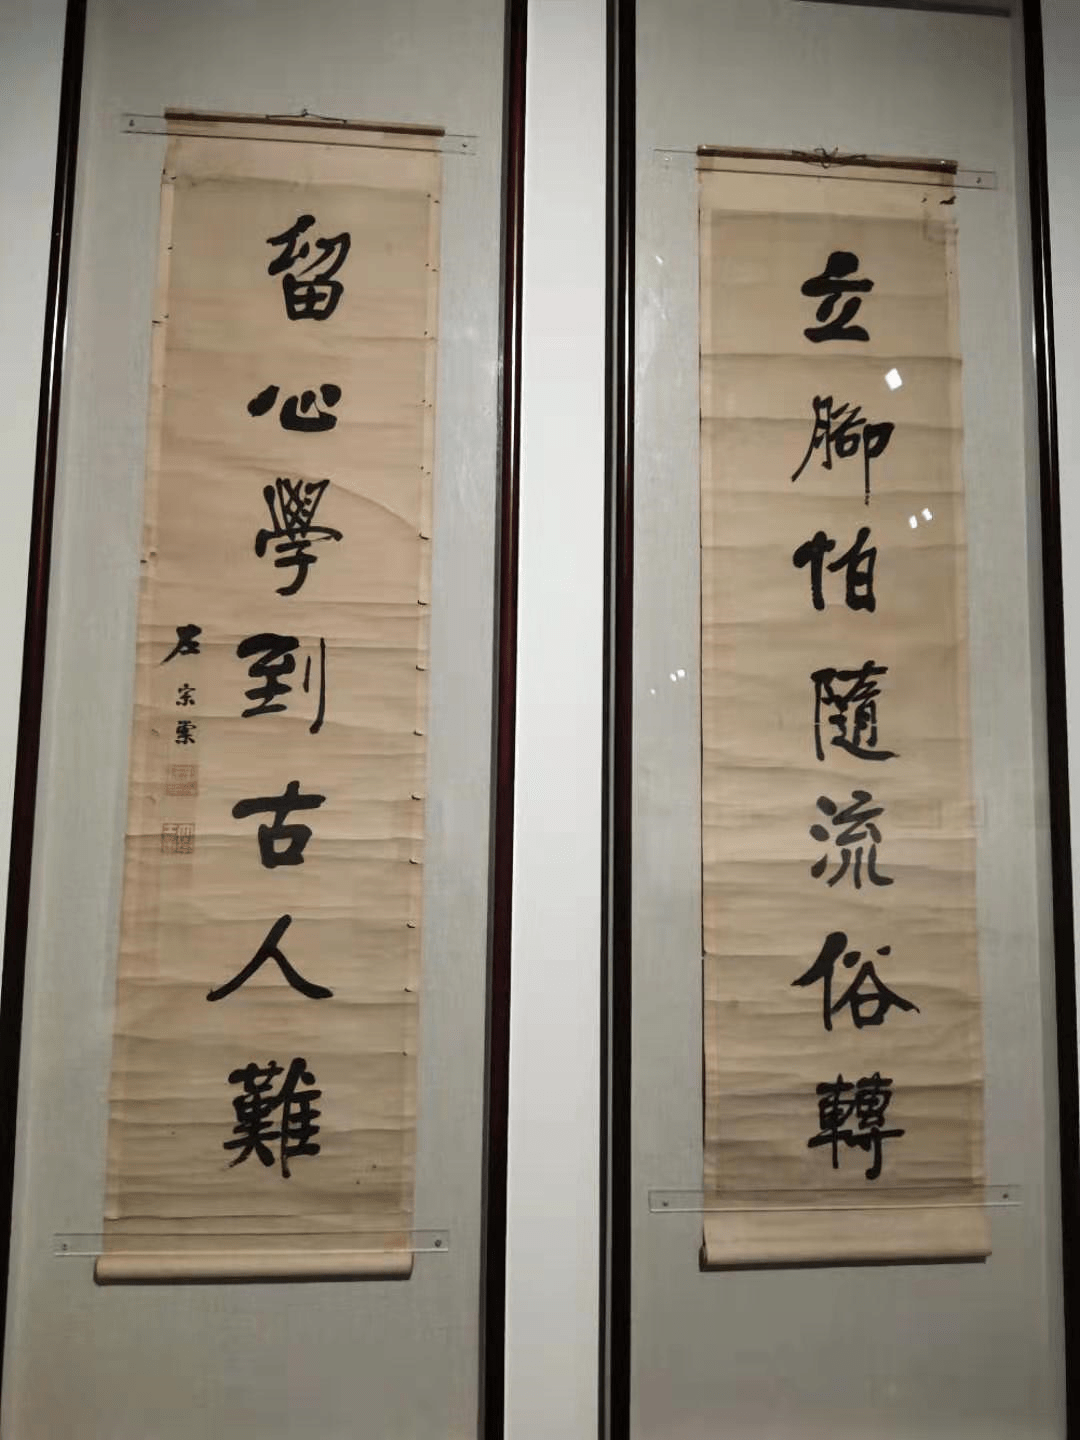 立腳怕隨流俗轉
留心學到古人難
左宗棠